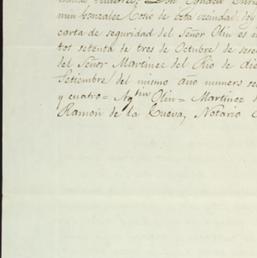 mun Gonzalez Cosio de esta vecindad: los
carta de seguridad del Señor Olin es n
tos setenta de tres de Octubre de
del Señor Martinez del Rio de die
Setiembre del mismo año numero se
y cuatro = Agtin Olin = Martinez
Ramon de la Cueva, Notario